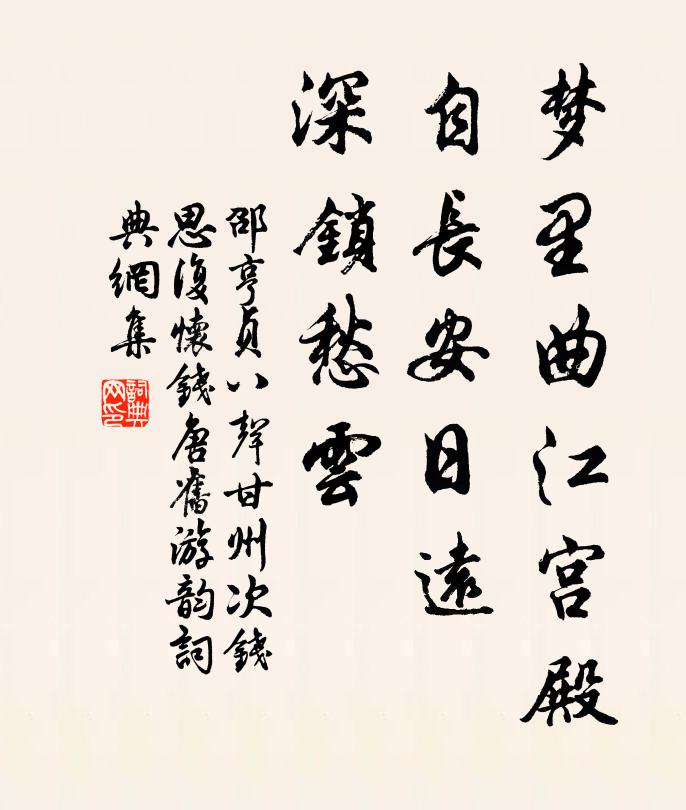 梦里曲江宫殿
自長安日遠
深鎖愁雲
邵亨貞八聲甘州次錢
思復懷錢唐舊游韵詞
典網集
詞典網印